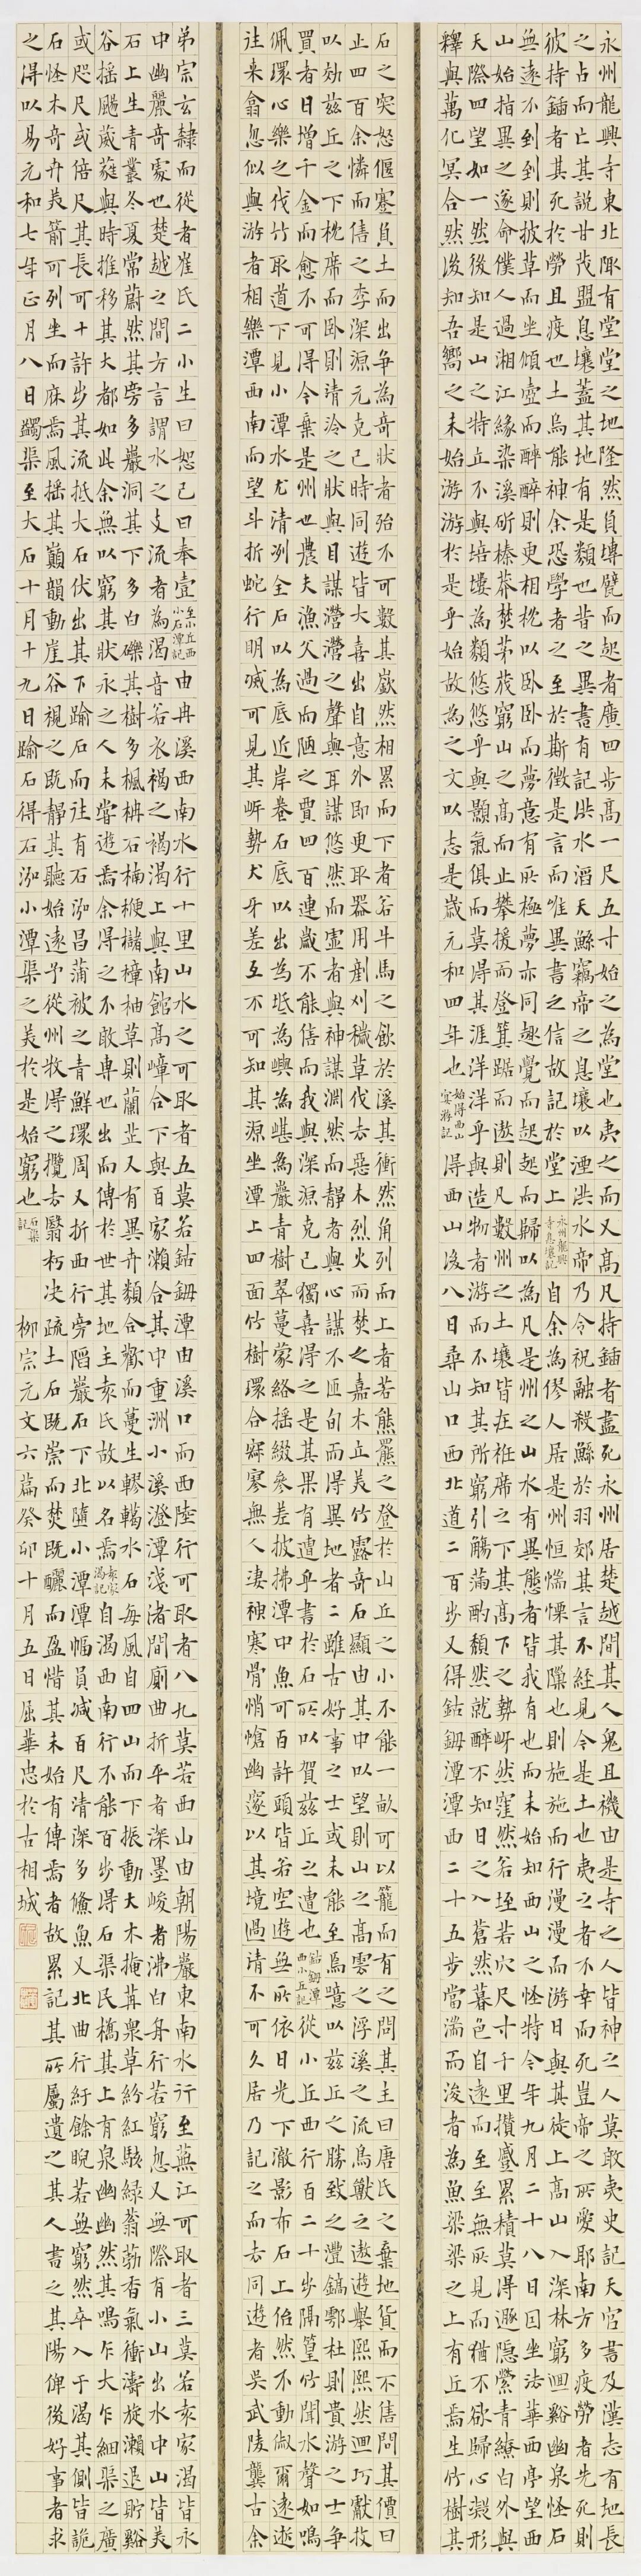 永州龍興寺東北陬有堂堂之地隆然負塼甓而起者廣四步高一尺五寸始之為堂也夷之而又高凡持鍤者盡死永州居楚越間其人鬼且禨由是寺之人皆神之人莫敢夷史記天官書及漢志有地長
之占而亡其說甘茂盟息壤蓋其地有是類也昔之異書有記洪水滔天鯀竊帝之息壤以湮洪水帝乃令祝融殺鯀於羽郊其言不經見今是土也夷之者不幸而死豈帝之所愛耶南方多疫勞者先死則
彼持鍤者其死於勞且疫也土烏能神余恐學者之至於斯徵是言而唯異書之信故記於堂上永州龍興寺息壤記自余為僇人居是州恒惴慄其隟也則施施而行漫漫而游日與其徒上高山入深林窮迴谿幽泉怪石
無遠不到到則披草而坐傾壺而醉醉則更相枕以卧卧而夢意有所極夢亦同趣覺而起起而歸以為凡是州之山水有異態者皆我有也而未始知西山之怪特今年九月二十八日因坐法華西亭望西
山始指異之遂命僕人過湘江緣染溪斫榛莽焚茅茷窮山之高而止攀援而登箕踞而遨則凡數州之土壤皆在衽席之下其高下之勢岈然窪然若垤若穴尺寸千里攢蹙累積莫得遯隱縈青繚白外與
天際四望如一然後知是山之特立不與培塿為類悠悠乎與顥氣俱而莫得其涯洋洋乎與造物者游而不知其所窮引觴滿酌頹然就醉不知日之入蒼然暮色自遠而至至無所見而猶不欲歸心凝形
釋與萬化冥合然後知吾嚮之未始游游於是乎始故為之文以志是歲元和四年也始得西山宴游記得西山後八日尋山口西北道二百步又得鈷鉧潭潭西二十五步當湍而浚者為魚梁梁之上有丘焉生竹樹其
石之突怒偃蹇負土而出爭為奇狀者殆不可數其嶔然相累而下者若牛馬之飲於溪其衝然角列而上者若熊羆之登於山丘之小不能一畝可以籠而有之問其主曰唐氏之棄地貨而不售問其價曰
止四百余憐而售之李深源元克己時同遊皆大喜出自意外即更取器用剷刈穢草伐去惡木烈火而焚之嘉木立美竹露奇石顯由其中以望則山之高雲之浮溪之流鳥獸之遨遊舉熙熙然迴巧獻技
以効茲丘之下枕席而卧則清泠之狀與目謀瀯瀯之聲與耳謀悠然而虛者與神謀淵然而靜者與心謀不匝旬而得異地者二雖古好事之士或未能至焉噫以茲丘之勝致之灃鎬鄠杜則貴游之士爭
買者日增千金而愈不可得今棄是州也農夫漁父過而陋之賈四百連歲不能售而我與深源克己獨喜得之是其果有遭乎書於石所以賀茲丘之遭也鈷鉧潭西小丘記從小丘西行百二十步隔篁竹聞水聲如鳴
佩環心樂之伐竹取道下見小潭水尤清冽全石以為底近岸卷石底以出為坻為嶼為嵁為巖青樹翠蔓蒙絡搖綴參差披拂潭中魚可百許頭皆若空遊無所依日光下澈影布石上佁然不動俶爾遠逝
往来翕忽似與游者相樂潭西南而望斗折蛇行明滅可見其岈勢犬牙差互不可知其源坐潭上四面竹樹環合寂寥無人凄神寒骨悄愴幽邃以其境過清不可久居乃記之而去同遊者吳武陵龔古余
弟宗玄隸而從者崔氏二小生曰恕己曰奉壹至小丘西小石潭記由冉溪西南水行十里山水之可取者五莫若鈷鉧潭由溪口而西陸行可取者八九莫若西山由朝陽巖東南水行至蕪江可取者三莫若袁家渴皆永
中幽麗奇處也楚越之間方言謂水之支流者為渴音若衣褐之褐渴上與南館高嶂合下與百家瀨合其中重洲小溪澄潭淺渚間廁曲折平者深墨峻者沸白舟行若窮忽又無際有小山出水中山皆美
石上生青叢冬夏常蔚然其旁多巖洞其下多白礫其樹多楓柟石楠楩櫧樟柚草則蘭芷又有異卉類合歡而蔓生轇轕水石每風自四山而下振動大木掩苒衆草紛紅駭綠蓊葧香氣衝濤旋瀨退貯谿
谷搖颺葳蕤與時推移其大都如此余無以窮其狀永之人未嘗遊焉余得之不敢專也出而傳於世其地主袁氏故以名焉袁家渴記自渴西南行不能百步得石渠民橋其上有泉幽幽然其鳴乍大乍細渠之廣
或咫尺或倍尺其長可十許步其流抵大石伏出其下踰石而往有石泓昌蒲被之青鮮環周又折西行旁陷巖石下北墮小潭潭幅員減百尺清深多鯈魚又北曲行紆餘睨若無窮然卒入于渴其側皆詭
石怪木奇卉美箭可列坐而庥焉風搖其巔韻動崖谷視之既靜其聽始遠予從州牧得之攬去翳朽决疏土石既崇而焚既釃而盈惜其未始有傳焉者故累記其所屬遺之其人書之其陽俾後好事者求
之得以易元和七年正月八日蠲渠至大石十月十九日踰石得石泓小潭渠之美於是始窮也石渠記 柳宗元文六篇癸卯十月五日屈華忠於古相城